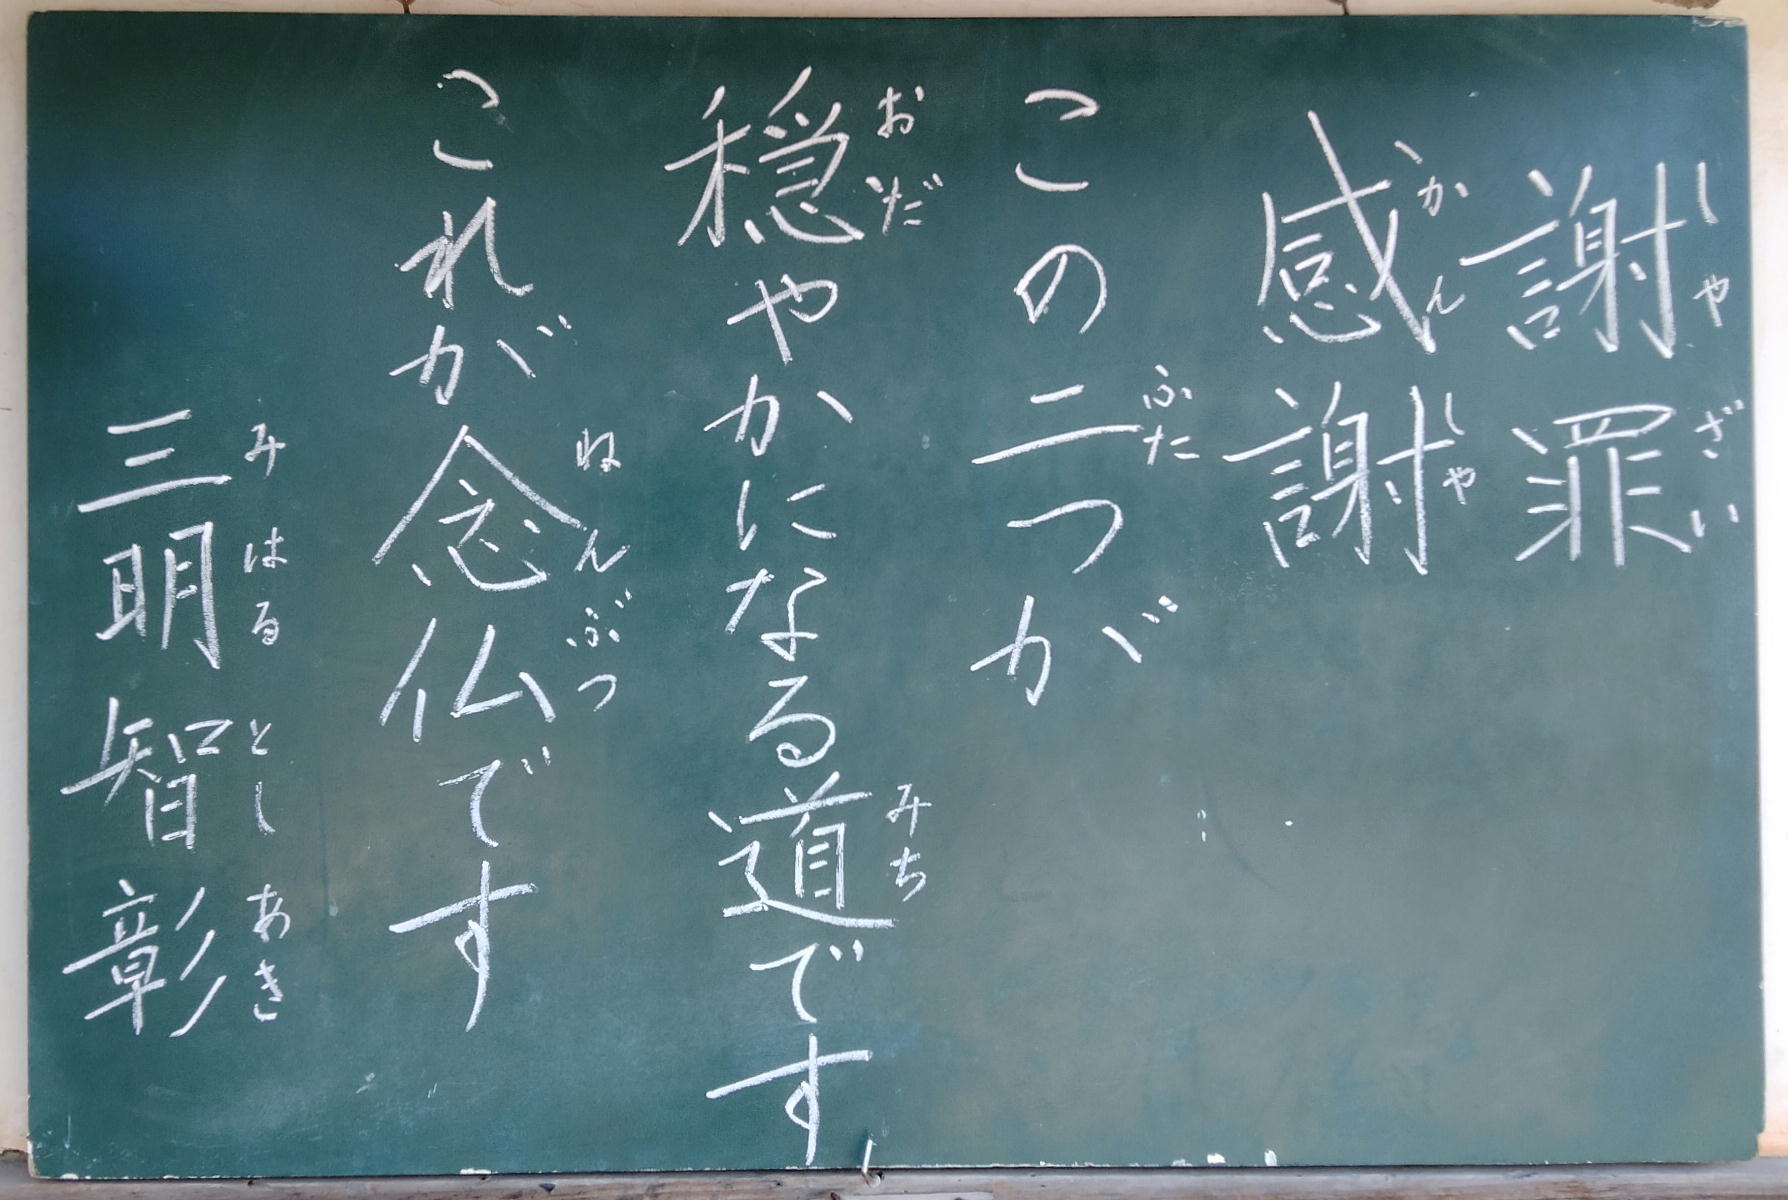 謝罪
感謝
この二つが
穏やかになる道です
これが念仏です
三明智彰
しゃざい
かんしゃ
ふた
おだ
みち
ねんぶつ
みはる としあき